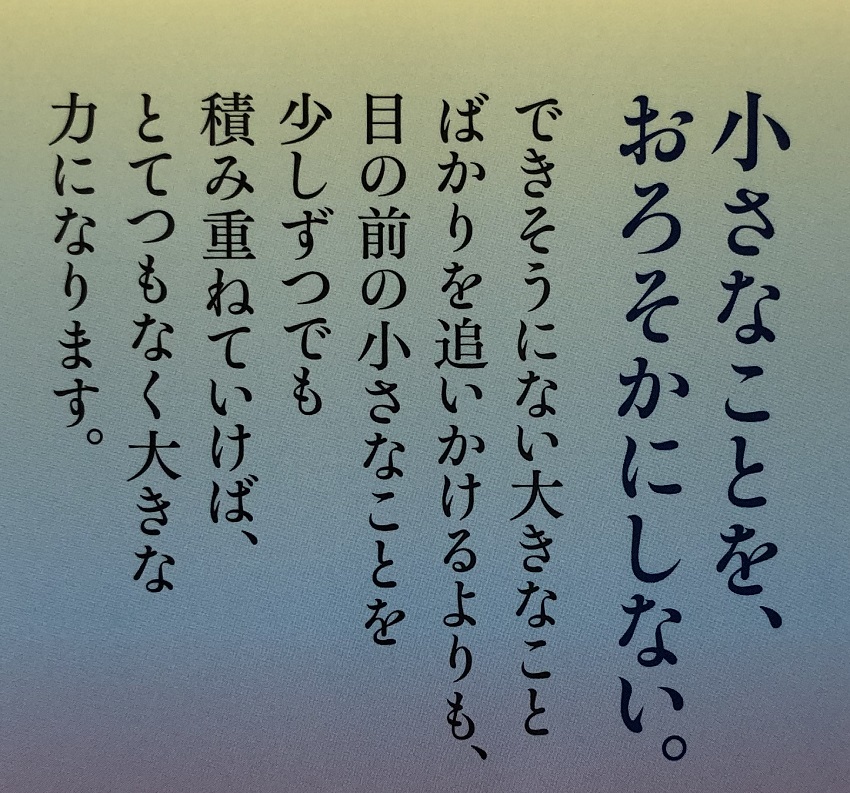 小さなことを、
おろそかにしない。
できそうにない大きなこと
ばかりを追いかけるよりも、
目の前の小さなことを
少しずつでも
積み重ねていけば、
とてつもなく大きな
力になります。